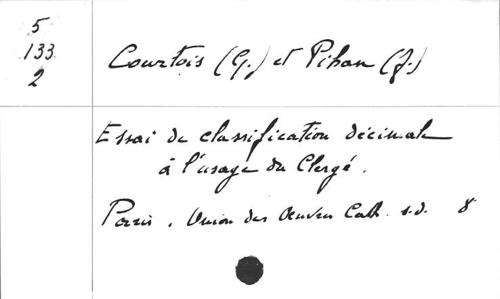 5
133
2
Courtois (G.) et Pihan (J.)
Essai de classification décimale
à l'usage du Clergé.
Paris, Union des Oeuvres Cath. s.d. 8